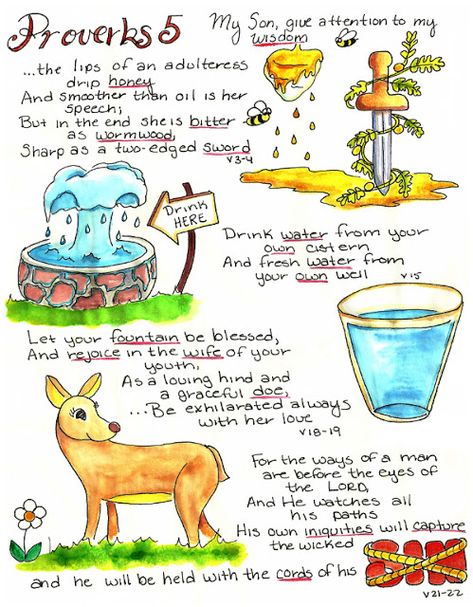 Proverbs 5
My Son, give attention to my
wisdom
...the lips of an adulteress
drip honey
And smoother than oil is her
speech;
But in the end she is bitter
as wormwood,
Sharp as a two-edged sword
v3-4
Drink
HERE
Drink water from your
own cistern
And fresh water from
your own well
v15
Let your fountain be blessed,
And rejoice in the wife of your
youth,
As a loving hind and
a graceful doe,
...Be exhilarated always
with her love
v18-19
For the ways of a man
are before the eyes of
the LORD,
And He watches all
his paths
His own iniquities will capture
the wicked
and he will be held with the cords of his SIN
v21-22